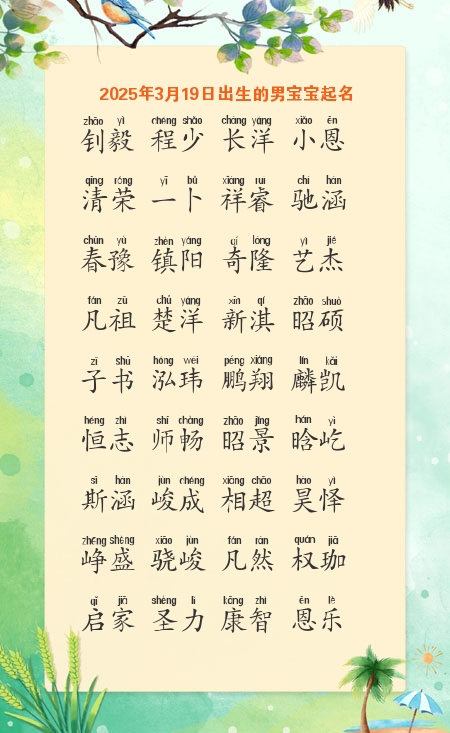 2025年3月19日出生的男宝宝起名
zhāo yì chéng shǎo cháng yáng xiǎo ēn
钊毅 程少 长洋 小恩
qīng róng yī bǔ xiáng ruì chí hán
清荣 一卜 祥睿 驰涵
chūn yù zhèn yáng qí lóng yì jié
春豫 镇阳 奇隆 艺杰
fán zǔ chǔ yáng xīn qí zhāo shuò
凡祖 楚洋 新淇 昭硕
zǐ shū hóng wěi péng xiáng lín kǎi
子书 泓玮 鹏翔 麟凯
héng zhì shī chàng zhāo jǐng hán yì
恒志 师畅 昭景 晗屹
sī hán jùn chéng xiāng chāo hào yì
斯涵 峻成 相超 昊怿
zhēng shèng xiāo jùn fán rán quán jiā
峥盛 骁峻 凡然 权珈
qǐ jiā shèng lì kāng zhì ēn lè
启家 圣力 康智 恩乐